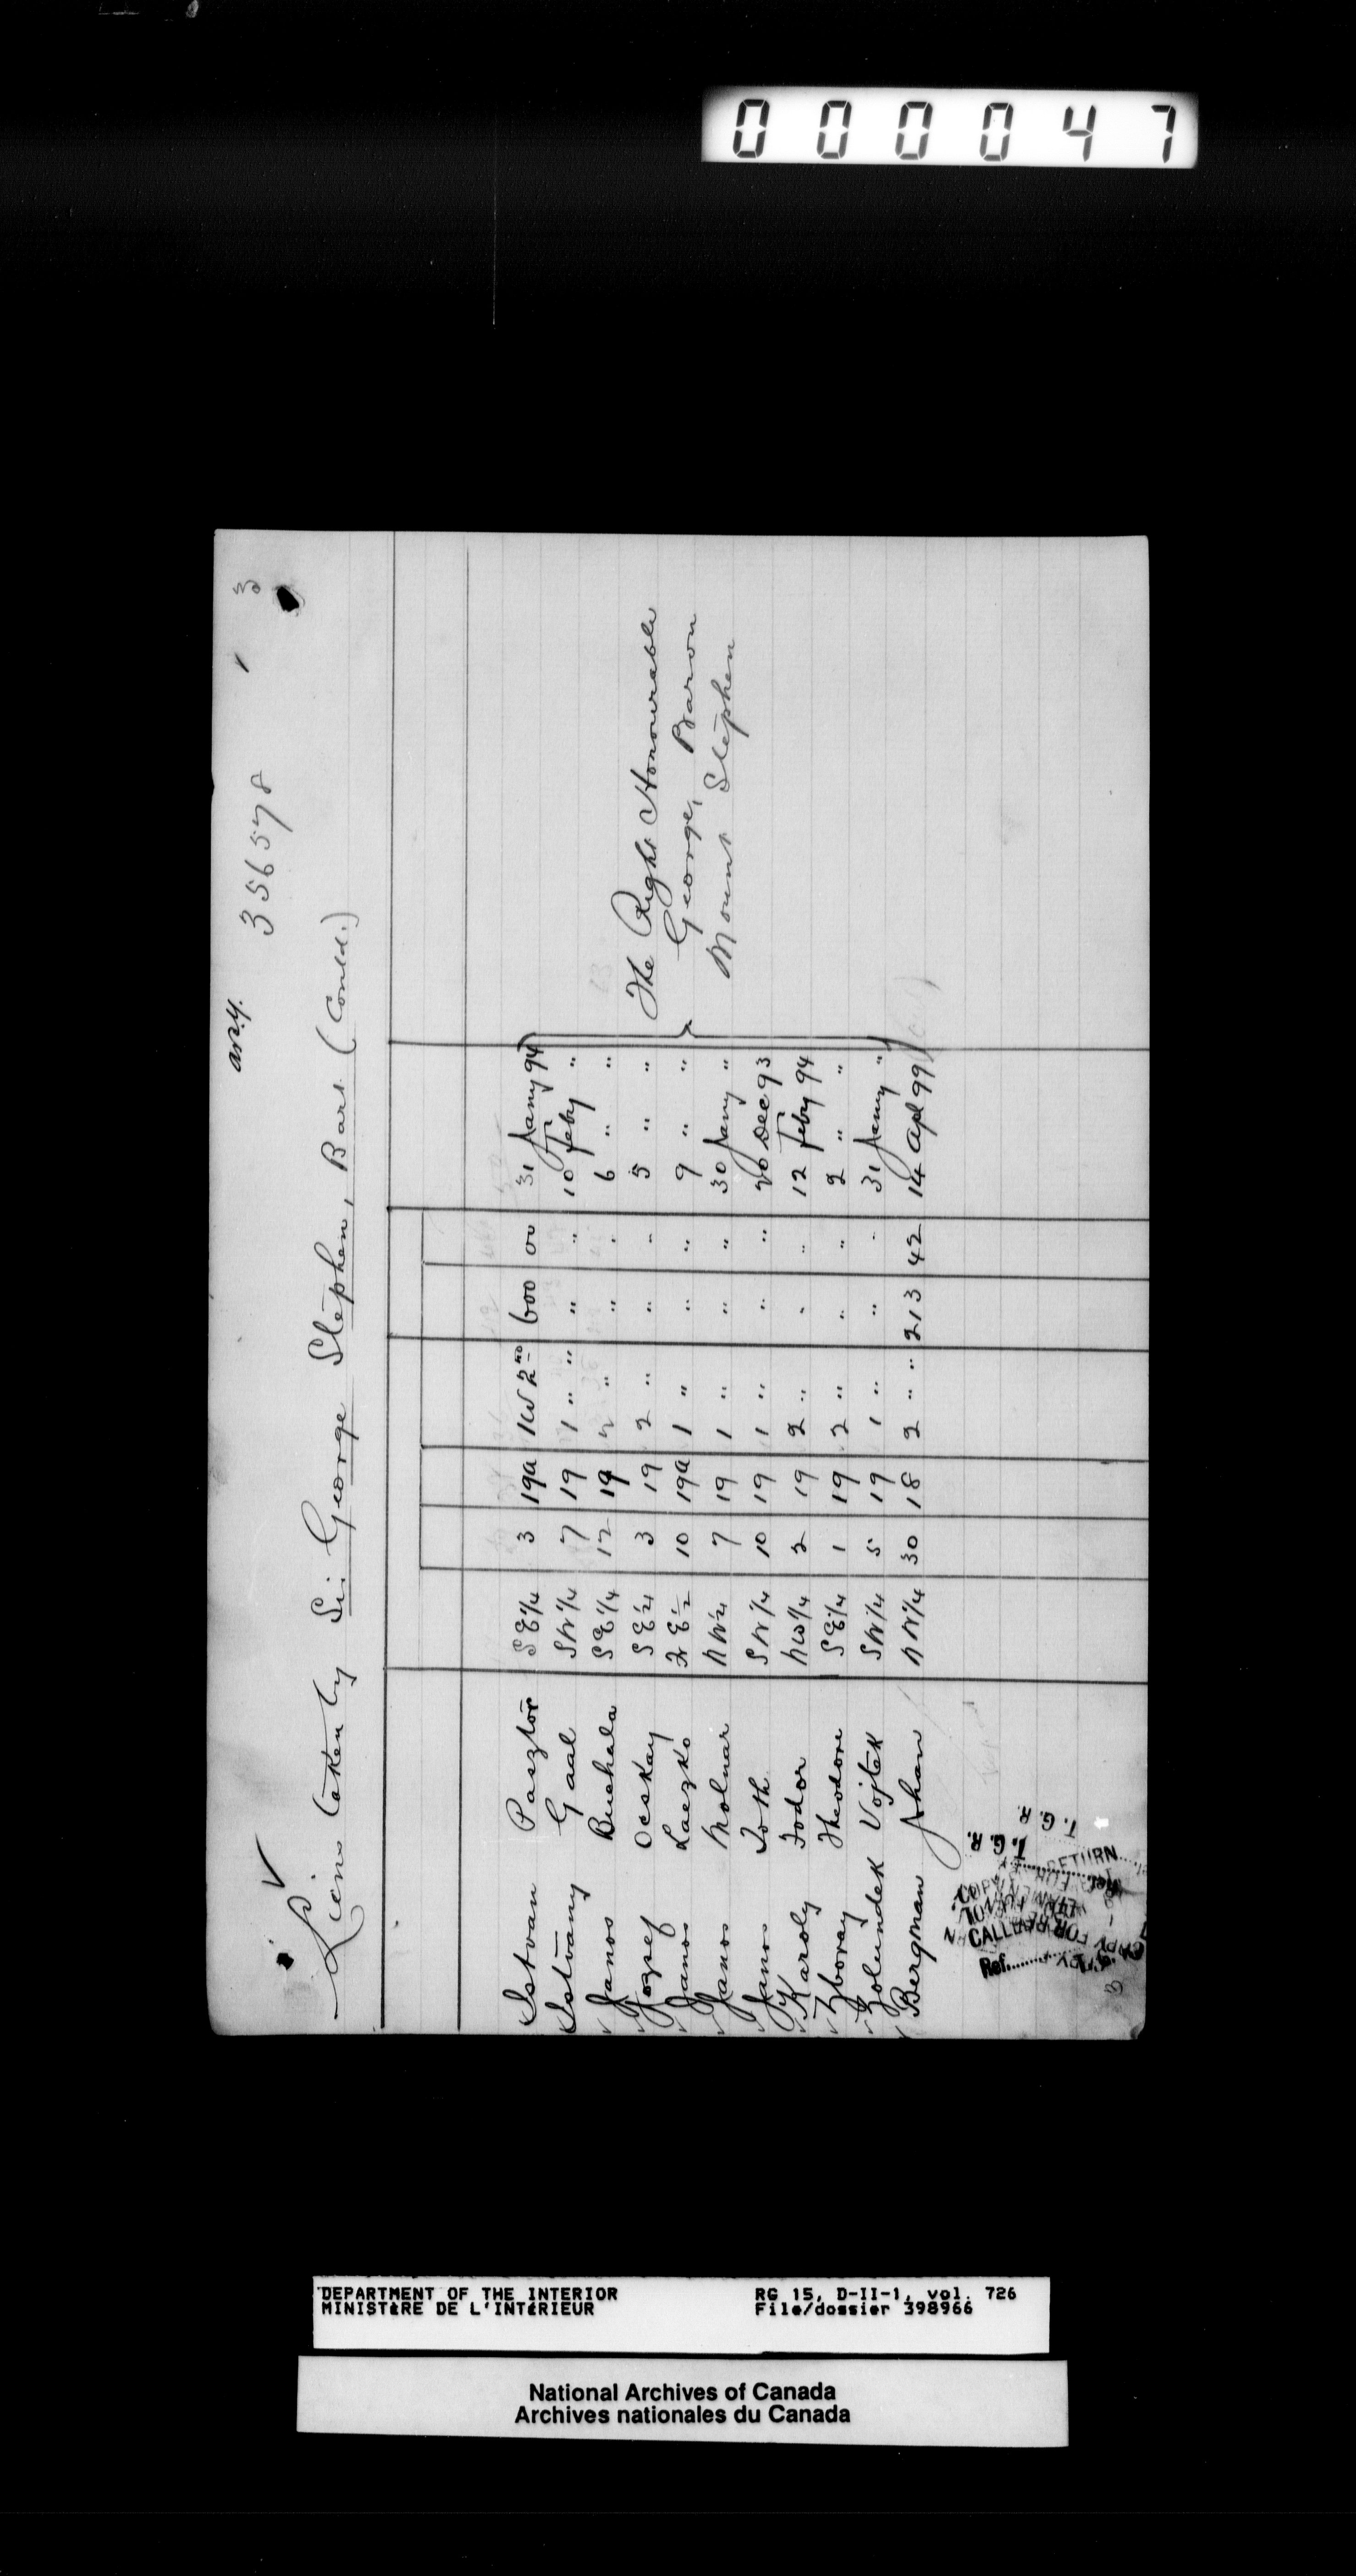 000047
3
any.
356578
Liens taken by Sir George Stephen, Bart. (Contd.)
Istvan Pasztor SE 1/4 3 19a 1 W 2nd 600 00 31 Jany 94
Istvany Gaal SW 1/4 7 19 1 " " " " 10 Feby "
Janos Buchala SE 1/4 12 19 2 " " " 6 " "
Jozsef Ocskay SE 1/4 3 19 2 " " " 5 " "
Janos Laczko Fr E 1/2 10 19a 1 " " " 9 " "
Janos Molnar NW 1/4 7 19 1 " " " 30 Jany "
Janos Toth SW 1/4 10 19 1 " " " 20 Dec 93
Karoly Fodor NW 1/4 2 19 2 " " " 12 Feby 94
Zboray Theodore SE 1/4 1 19 2 " " " 2 " "
Zolundek Vojtek SW 1/4 5 19 1 " " " 31 Jany "
Bergman Johan NW 1/4 30 18 2 " " 213 42 14 Apl 99
The Right Honourable
George, Baron
Mount Stephen
T. G. R.
T. G. R.
RETURN
Ref.
DEPARTMENT OF THE INTERIOR
MINISTÈRE DE L'INTÉRIEUR
RG 15, D-II-1, vol. 726
File/dossier 398966
National Archives of Canada
Archives nationales du Canada